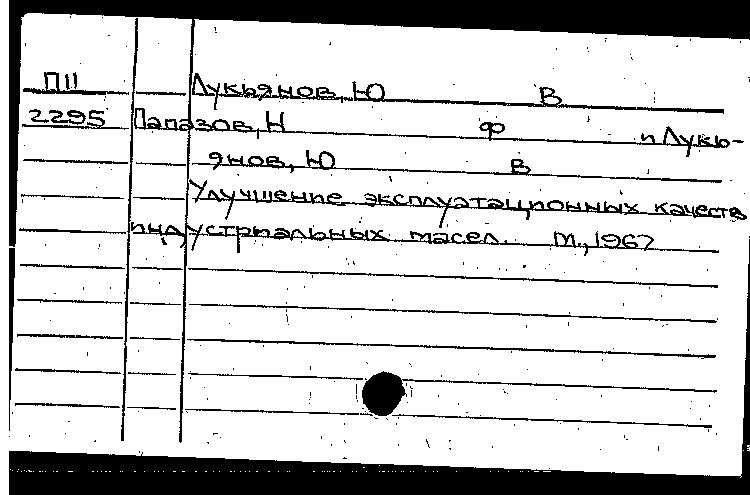 П11 Лукьянов, Ю В
2295 Папазов, Н Ф и Лукь-
янов, Ю В
Улучшение эксплуатационных качеств
индустриальных масел. М., 1967